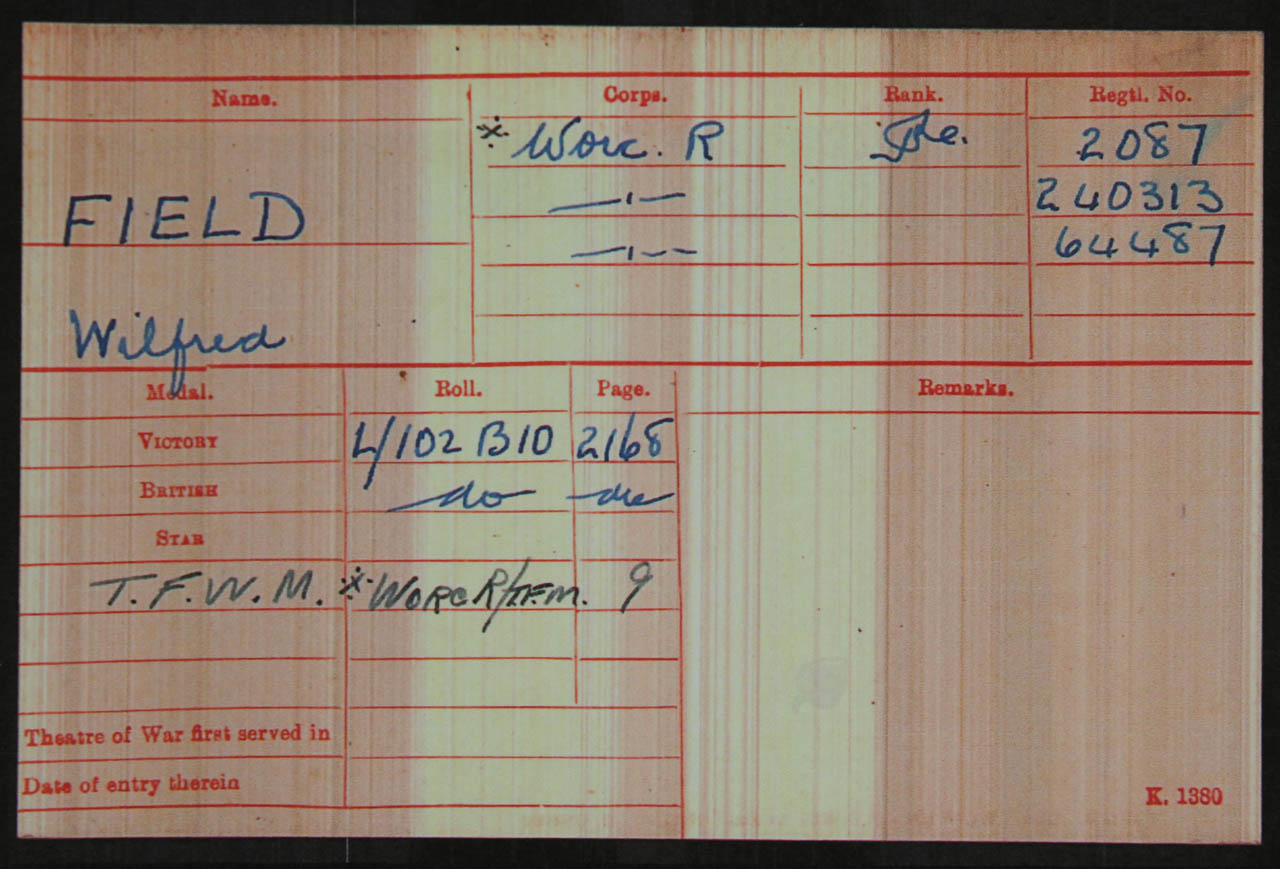 Name. Corps. Rank. Regtl. No.
※ Worc. R Pte. 2087
—"— 240313
FIELD —"— 64487
Wilfred
Medal. Roll. Page. Remarks.
VICTORY L/102 B10 2168
BRITISH do do
STAR
T.F.W.M. ※ WORC R/T.F.M. 9
Theatre of War first served in
Date of entry therein
K. 1380